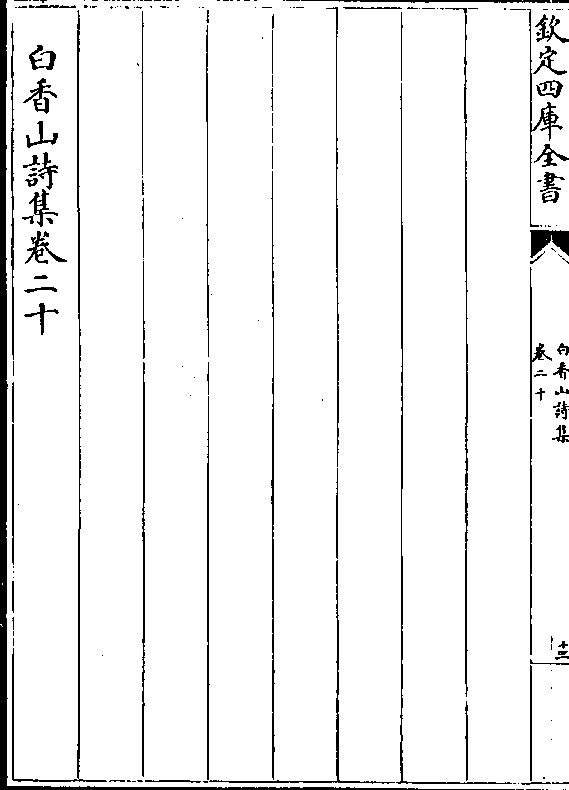 欽定四庫全書
白香山詩集
卷二十
十三
白香山詩集卷二十